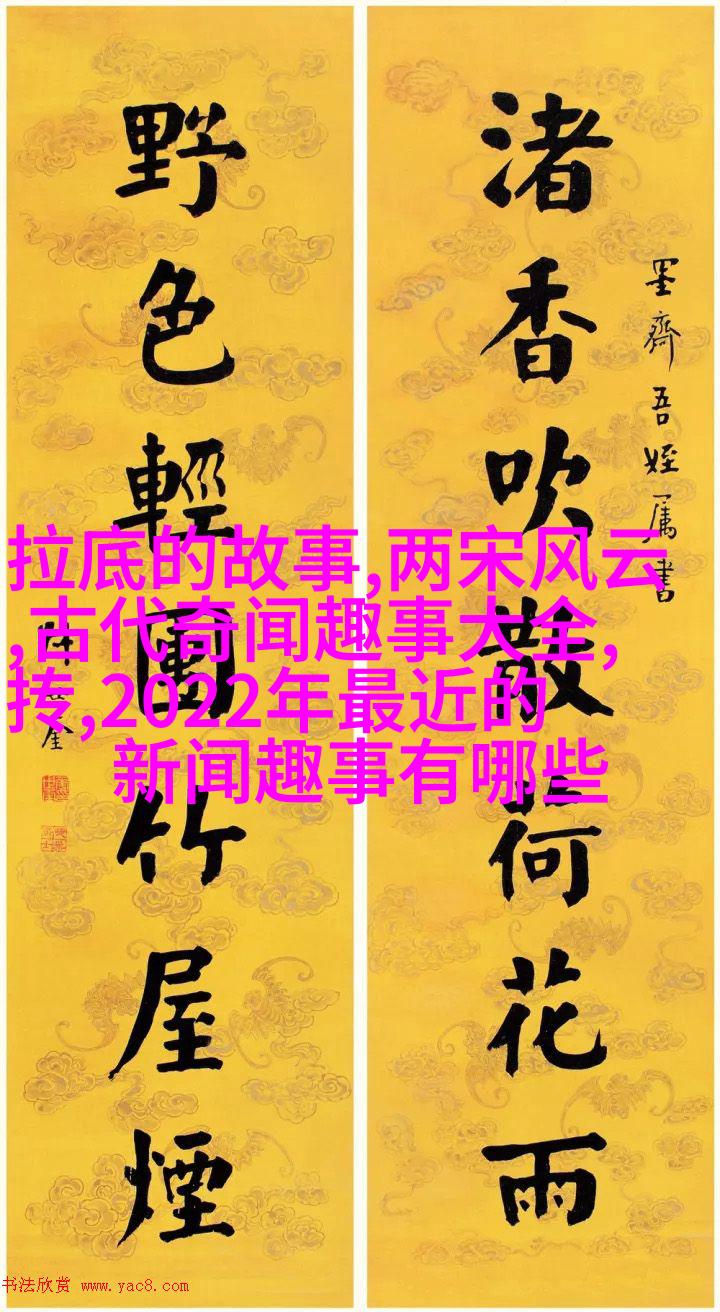 渚香吹散荷花雨
墨齋吾姪屬書
野色輕團竹屋煙
拉底的故事,两宋风云
,古代奇闻趣事大全,
抟,2022年最近的
新闻趣事有哪些
书法欣赏 www.yac8.com